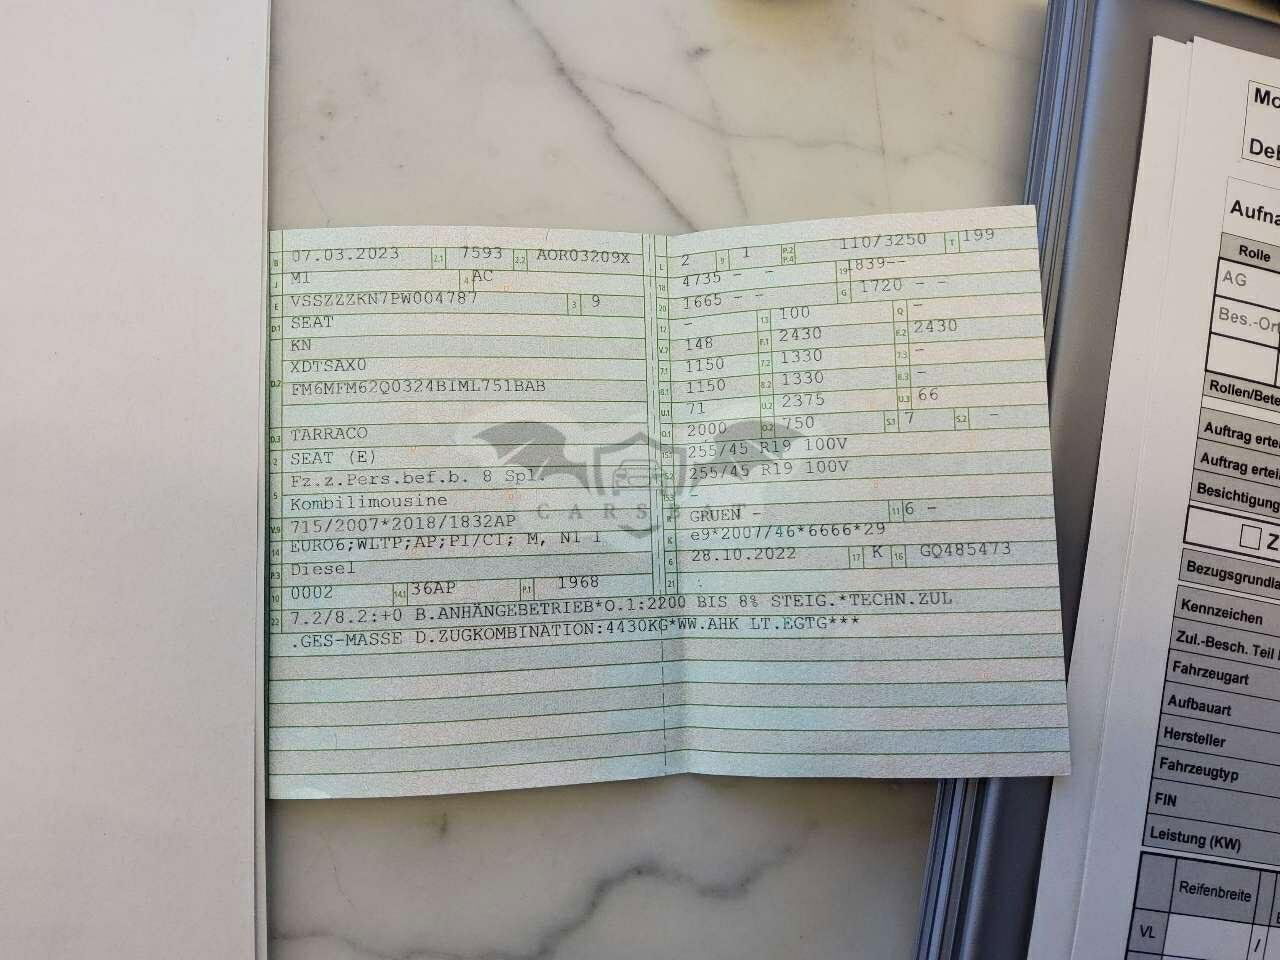 B 07.03.2023 2.1 7593 2.2 AOR03209X
J M1 4 AC
E VSSZZZKN7PW004787 3 9
D.1 SEAT
KN
D.2 XDTSAX0
FM6MFM62Q0324B1ML751BAB
D.3 TARRACO
2 SEAT (E)
5 Fz.z.Pers.bef.b. 8 Spl
Kombilimousine
V.9 715/2007*2018/1832AP
14 EURO6;WLTP;AP;PI/CI; M, N1 I
P.3 Diesel
10 0002 14.1 36AP P.1 1968
L 2 9 1 P.2 P.4 110/3250 T 199
18 4735 - - 19 1839--
20 1665 - - G 1720 - -
12 - 13 100 Q -
V.7 148 F.1 2430 F.2 2430
7.1 1150 7.2 1330 7.3 -
8.1 1150 8.2 1330 8.3 -
U.1 71 U.2 2375 U.3 66
O.1 2000 O.2 750 S.1 7 S.2 -
15.1 255/45 R19 100V
15.2 255/45 R19 100V
15.3 -
R GRUEN - 11 6 -
K e9*2007/46*6666*29
6 28.10.2022 17 K 16 GQ485473
21
22 7.2/8.2:+0 B.ANHÄNGEBETRIEB*O.1:2200 BIS 8% STEIG.*TECHN.ZUL
.GES-MASSE D.ZUGKOMBINATION:4430KG*WW.AHK LT.EGTG***
Aufna
Rolle
AG
Bes.-Or
Rollen/Bete
Auftrag erte
Auftrag erteil
Besichtigung
Z
Bezugsgrundla
Kennzeichen
Zul.-Besch. Teil
Fahrzeugart
Aufbauart
Hersteller
Fahrzeugtyp
FIN
Leistung (KW)
Reifenbreite
VL /